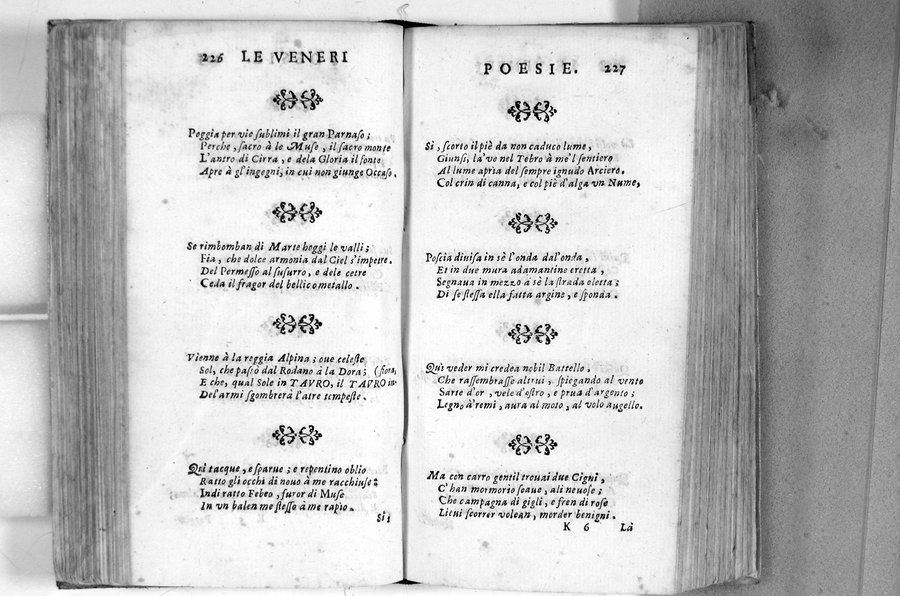 226 LE VENERI
Poggia per vie sublimi il gran Parnaso;
Perche, sacro à le Muse, il sacro monte
L'antro di Cirra, e dela Gloria il fonte
Apre à gl'ingegni, in cui non giunge Occaso.
Se rimbomban di Marte hoggi le valli;
Fia, che dolce armonia dal Ciel s'impetre.
Del Permesso al susurro, e dele cetre
Ceda il fragor del bellico metallo.
Vienne à la reggia Alpina; oue celeste
Sol, che passò dal Rodano à la Dora; (fiora,
E che, qual Sole in TAVRO, il TAVRO in-
Del'armi sgombrerà l'atre tempeste.
Qui tacque, e sparue; e repentino oblio
Ratto gli occhi di nouo à me racchiuse:
Indi ratto Febeo, furor di Muse
In vn balen me stesso à me rapio.
Sì,
POESIE. 227
Sì, scorto il piè da non caduco lume,
Giunsi, là've nel Tebro à me'l sentiero
Al lume apria del sempre ignudo Arciero.
Col crin di canna, e col piè d'alga vn Nume,
Poscia diuisa in sè l'onda dal'onda,
Et in due mura adamantine eretta,
Segnaua in mezzo à sè la strada eletta;
Di se stessa ella fatta argine, e sponda.
Quì veder mi credea nobil Battello,
Che rassembrasse altrui, spiegando al vento
Sarte d'or, vele d'ostro, e prua d'argento;
Legno à remi, aura al moto, al volo augello.
Ma con carro gentil trouai due Cigni,
C'han mormorio soaue, ali neuose;
Che campagna di gigli, e fren di rose
Lieui scorrer volean, morder benigni.
K 6 Là